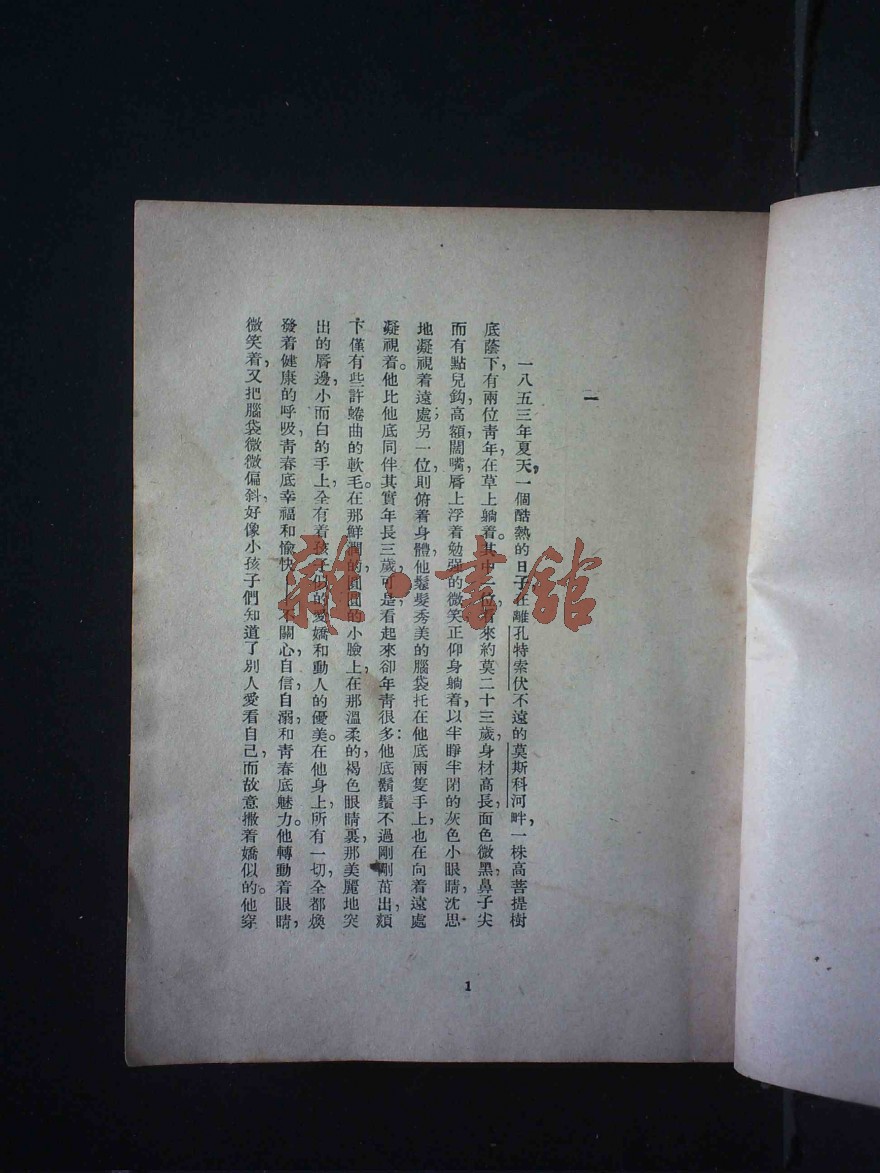 一
一八五三年夏天，一個酷熱的日子，在離孔特索伏不遠的莫斯科河畔，一株高菩提樹
底蔭下，有兩位青年，在草上躺着。其中一位，看來約莫二十三歲，身材高長，面色微黑，鼻子尖
而有點兒鈎，高額，闊嘴，唇上浮着勉强的微笑，正仰身躺着，以半睜半閉的灰色小眼睛，沈思
地凝視着遠處；另一位，則俯着身體，他鬈髮秀美的腦袋托在他底兩隻手上，也在向着遠處
凝視着。他比他底同伴其實年長三歲，可是看起來卻年靑很多：他底鬍鬚不過剛剛茁出，頦
下僅有些許蜷曲的軟毛。在那鮮潤的，圓圓的小臉上，在那溫柔的，褐色眼睛裏，那美麗地突
出的唇邊，小而白的手上，全有着孩子似的愛嬌和動人的優美。在他身上，所有一切，全都煥
發着健康的呼吸，靑春底幸福和愉快——不關心，自信，自溺，和靑春底魅力。他轉動着眼睛，
微笑着，又把腦袋微微偏斜，好像小孩子們知道了別人愛看自己，而故意撒着嬌似的。他穿
1
雜·書館